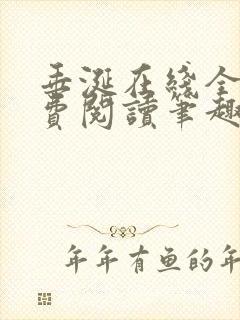 垂涎在线全
费阅读笔趣
年年有鱼的年